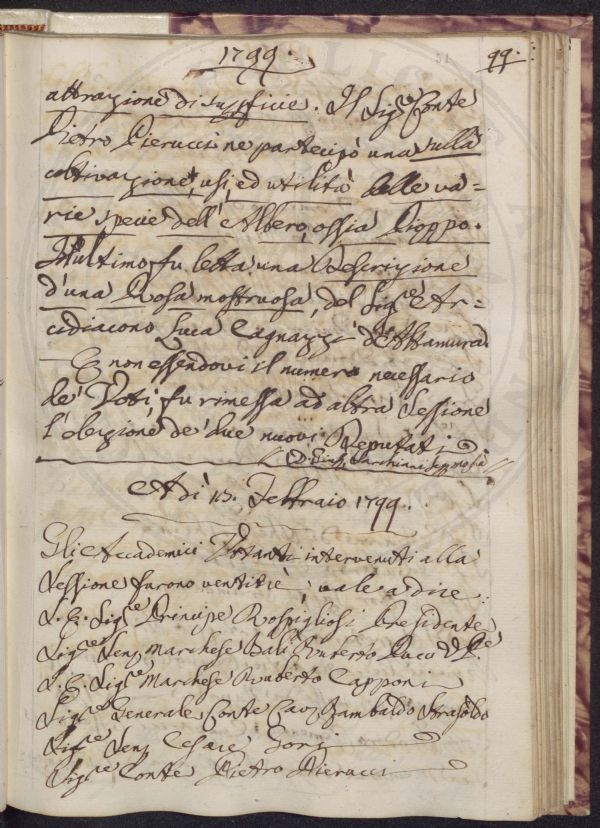 1799.
51
99.
attrazione di supficie. Il Sig.e Conte
Pietro Pierucci ne partecipò una sulla
coltivazione, usi, ed utilità delle va=
rie specie dell'Albero, ossia Pioppo.
In ultimo fu letta una Descrizione
d'una Rosa mostruosa, del Sig.e Ar=
cidiacono Luca Cagnazzi d'Altamura
E non essendovi il numero necessario
de' Voti, fu rimessa ad altra Sessione
l'elezione de' due nuovi Deputati
D. Gius. Sarchiani
Adì 13. Febbraio 1799.
Gli Accademici Votanti intervenuti alla
Sessione furono ventitrè, vale a dire:
S. E. Sig.e Principe Rospigliosi Presidente
Sig.e Sen. Marchese Balì Ruberto Pucci V. P.e
S. E. Sig.e Marchese Ruberto Capponi
Sig.e Generale Conte Cav. Gambaldo Strasoldo
Sig.e Sen. Cesare Gori
Sig.e Conte Pietro Pierucci